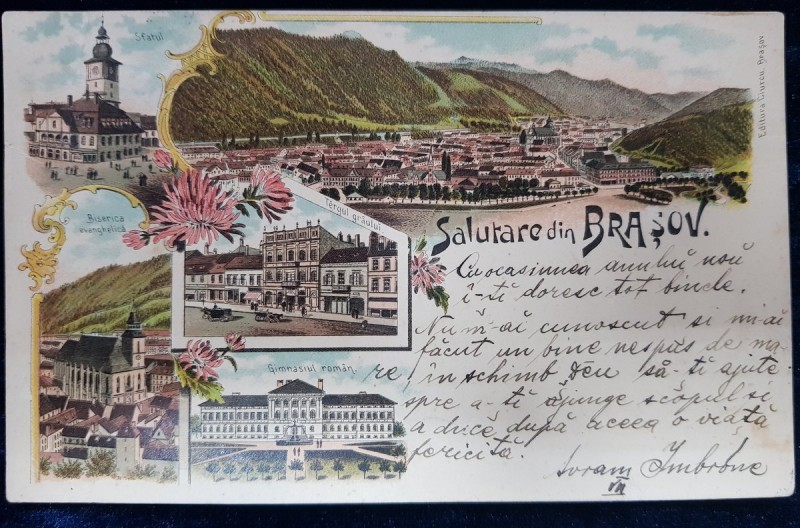 Sfatul
Editura Ciurcu, Brașov
Biserica
evanghelică
Tĕrgul grâului
Salutare din BRAȘOV.
Cu ocasiunea anului noŭ
î-ti doresc tot binele.
Nu m-ai cunoscut si mi-ai
făcut un bine nespus de ma-
re, în schimb Deu să-ti ajute
spre a-ti ajunge scopul si
a duce după aceea o viată
fericită.
Gimnasiul român.
Avram Imbrone
VII